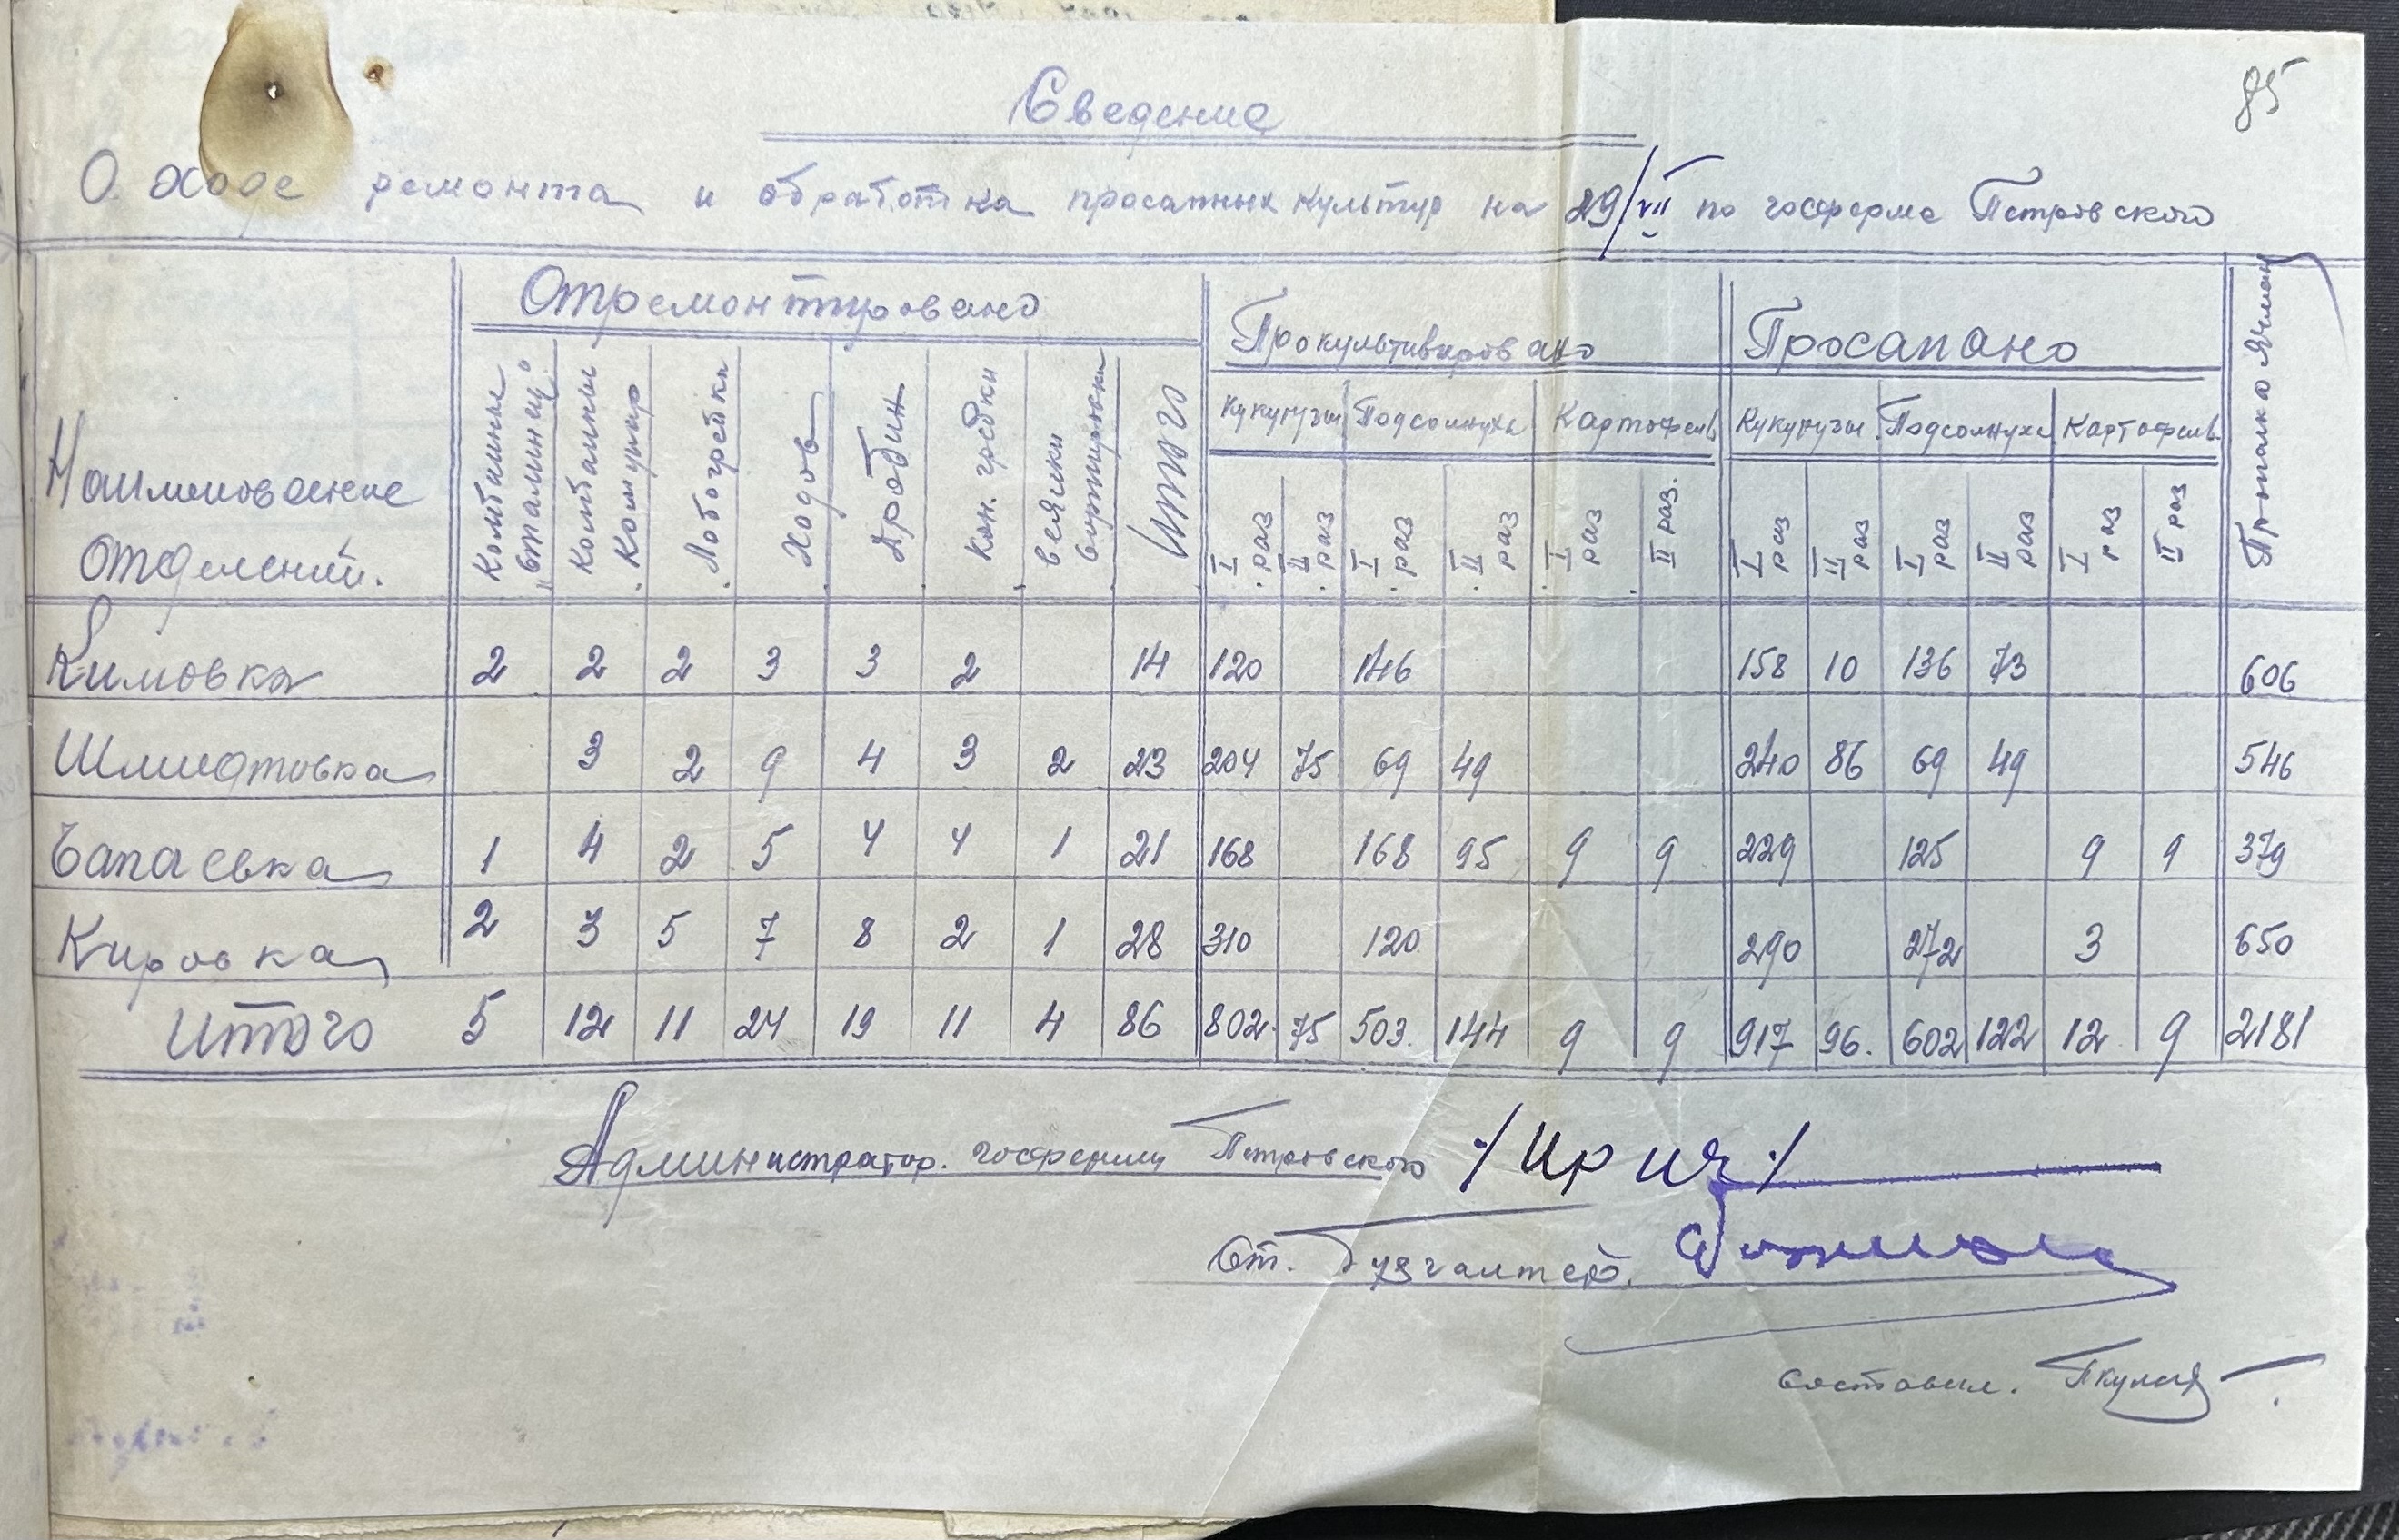 85
Сведение
О ходе ремонта и обработка просапных культур на 29/VII по госферме Петровского
Наименование отделений. | Отремонтировано | Прокультивировано | Просапано | Прополка ячмен
Комбайны „Сталинец“ | Комбайны Комунар | Лобогрейки | Ходов | Дробин | Кон. гребки | веялки сортировки | Итого | Кукурузы | Подсолнухи | Картофель | Кукурузы | Подсолнухи | Картофель.
I раз | II раз | I раз | II раз | I раз | II раз. | I раз | II раз | I раз | II раз | I раз | II раз
Климовка | 2 | 2 | 2 | 3 | 3 | 2 | | 14 | 120 | | 146 | | | | 158 | 10 | 136 | 73 | | | 606
Шмидтовка | | 3 | 2 | 9 | 4 | 3 | 2 | 23 | 204 | 75 | 69 | 49 | | | 240 | 86 | 69 | 49 | | | 546
Чапаевка | 1 | 4 | 2 | 5 | 4 | 4 | 1 | 21 | 168 | | 168 | 95 | 9 | 9 | 229 | | 125 | | 9 | 9 | 379
Кировка | 2 | 3 | 5 | 7 | 8 | 2 | 1 | 28 | 310 | | 120 | | | | 290 | | 272 | | 3 | | 650
Итого | 5 | 12 | 11 | 24 | 19 | 11 | 4 | 86 | 802. | 75 | 503. | 144 | 9 | 9 | 917 | 96. | 602 | 122 | 12 | 9 | 2181
Администратор. госфермы Петровского
Ст. Бухгалтер.
Составил.